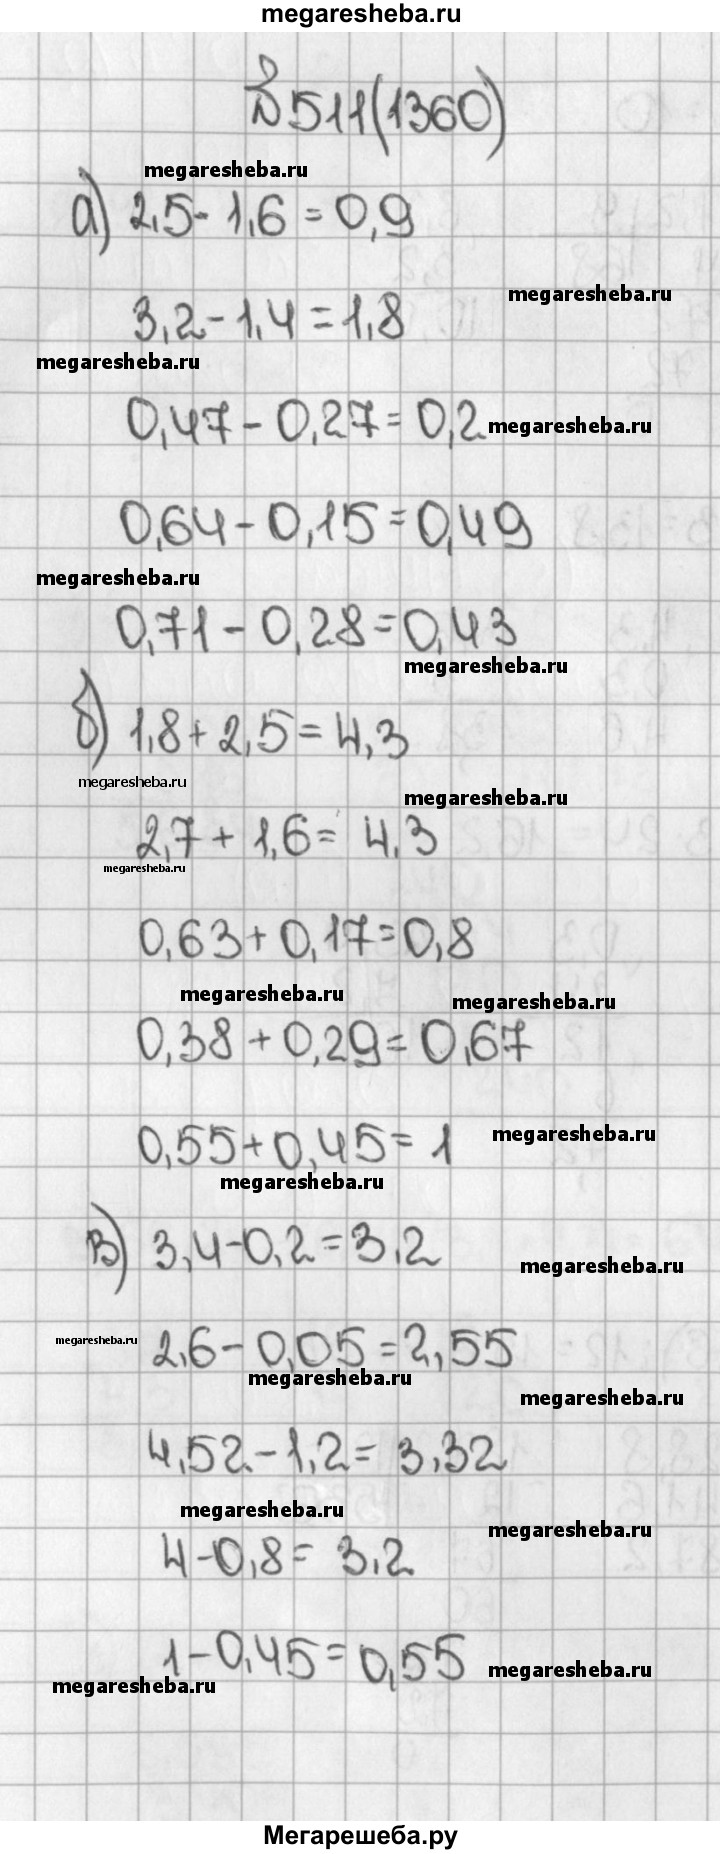 megaresheba.ru
№511(1360)
megaresheba.ru
а) 2,5-1,6=0,9
megaresheba.ru
3,2-1,4=1,8
megaresheba.ru
0,47-0,27=0,2 megaresheba.ru
0,64-0,15=0,49
megaresheba.ru
0,71-0,28=0,43
megaresheba.ru
б) 1,8+2,5=4,3
megaresheba.ru
megaresheba.ru
2,7+1,6= 4,3
megaresheba.ru
0,63+0,17=0,8
megaresheba.ru
megaresheba.ru
0,38+0,29=0,67
0,55+0,45= 1 megaresheba.ru
megaresheba.ru
в) 3,4-0,2=3,2
megaresheba.ru
megaresheba.ru 2,6-0,05=2,55
megaresheba.ru
megaresheba.ru
4,52-1,2= 3,32
megaresheba.ru
megaresheba.ru
4-0,8= 3,2
1-0,45=0,55 megaresheba.ru
megaresheba.ru
Мегарешеба.ру